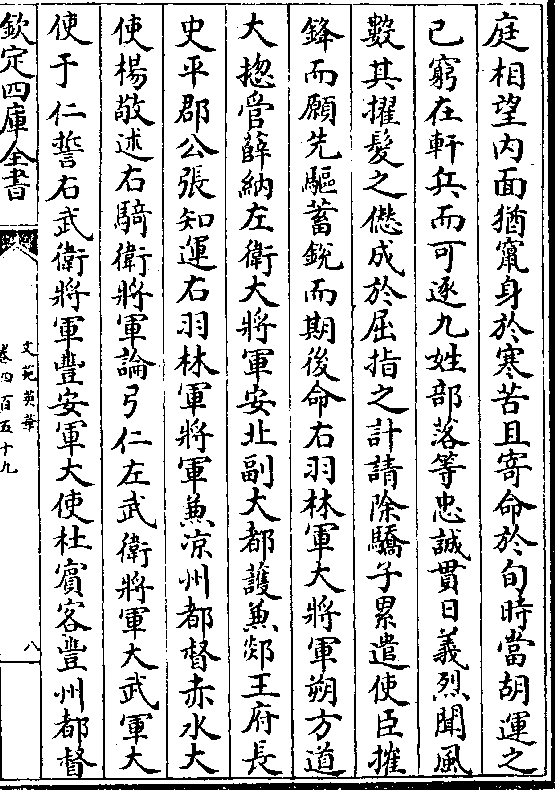 庭相望内面猶竄身於寒苦且寄命於旬時當胡運之
已窮在軒兵而可逐九姓部落等忠誠貫日義烈聞風
數其擢髮之㦗成於屈指之計請除驕子累遣使臣摧
鋒而願先驅蓄銳而期後命右羽林軍大將軍朔方道
大揔管薛納左衛大將軍安北副大都護兼郯王府長
史平郡公張知運右羽林軍將軍兼凉州都督赤水大
使楊敬述右驍衛將軍論弓仁左武衛將軍大武軍大
使于仁誓右武衛將軍豐安軍大使杜賓客豐州都督
欽定四庫全書
文苑英華
卷四百五十九
八